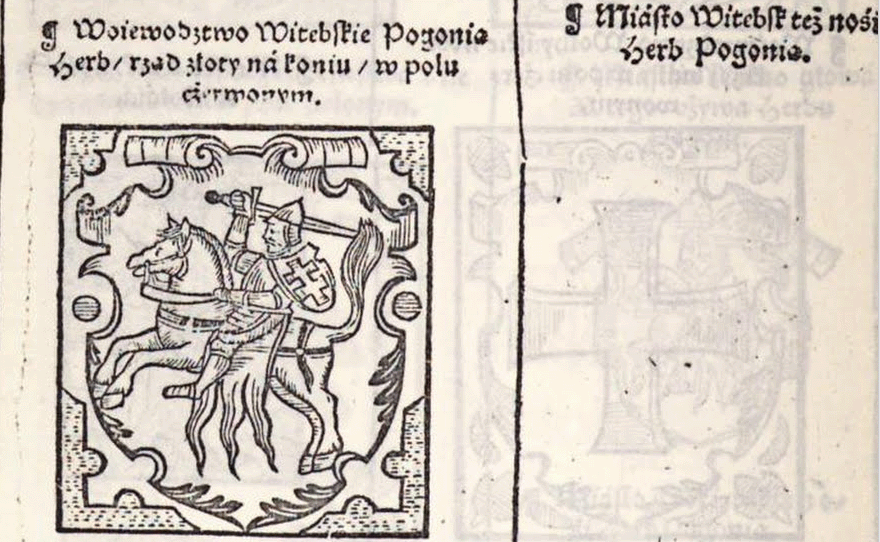 ¶ Woiewodztwo Witebſkie Pogonia
Herb / rząd złoty ná koniu / w polu
czerwonym.
¶ Miáſto Witebſk też nośi
Herb Pogonia.